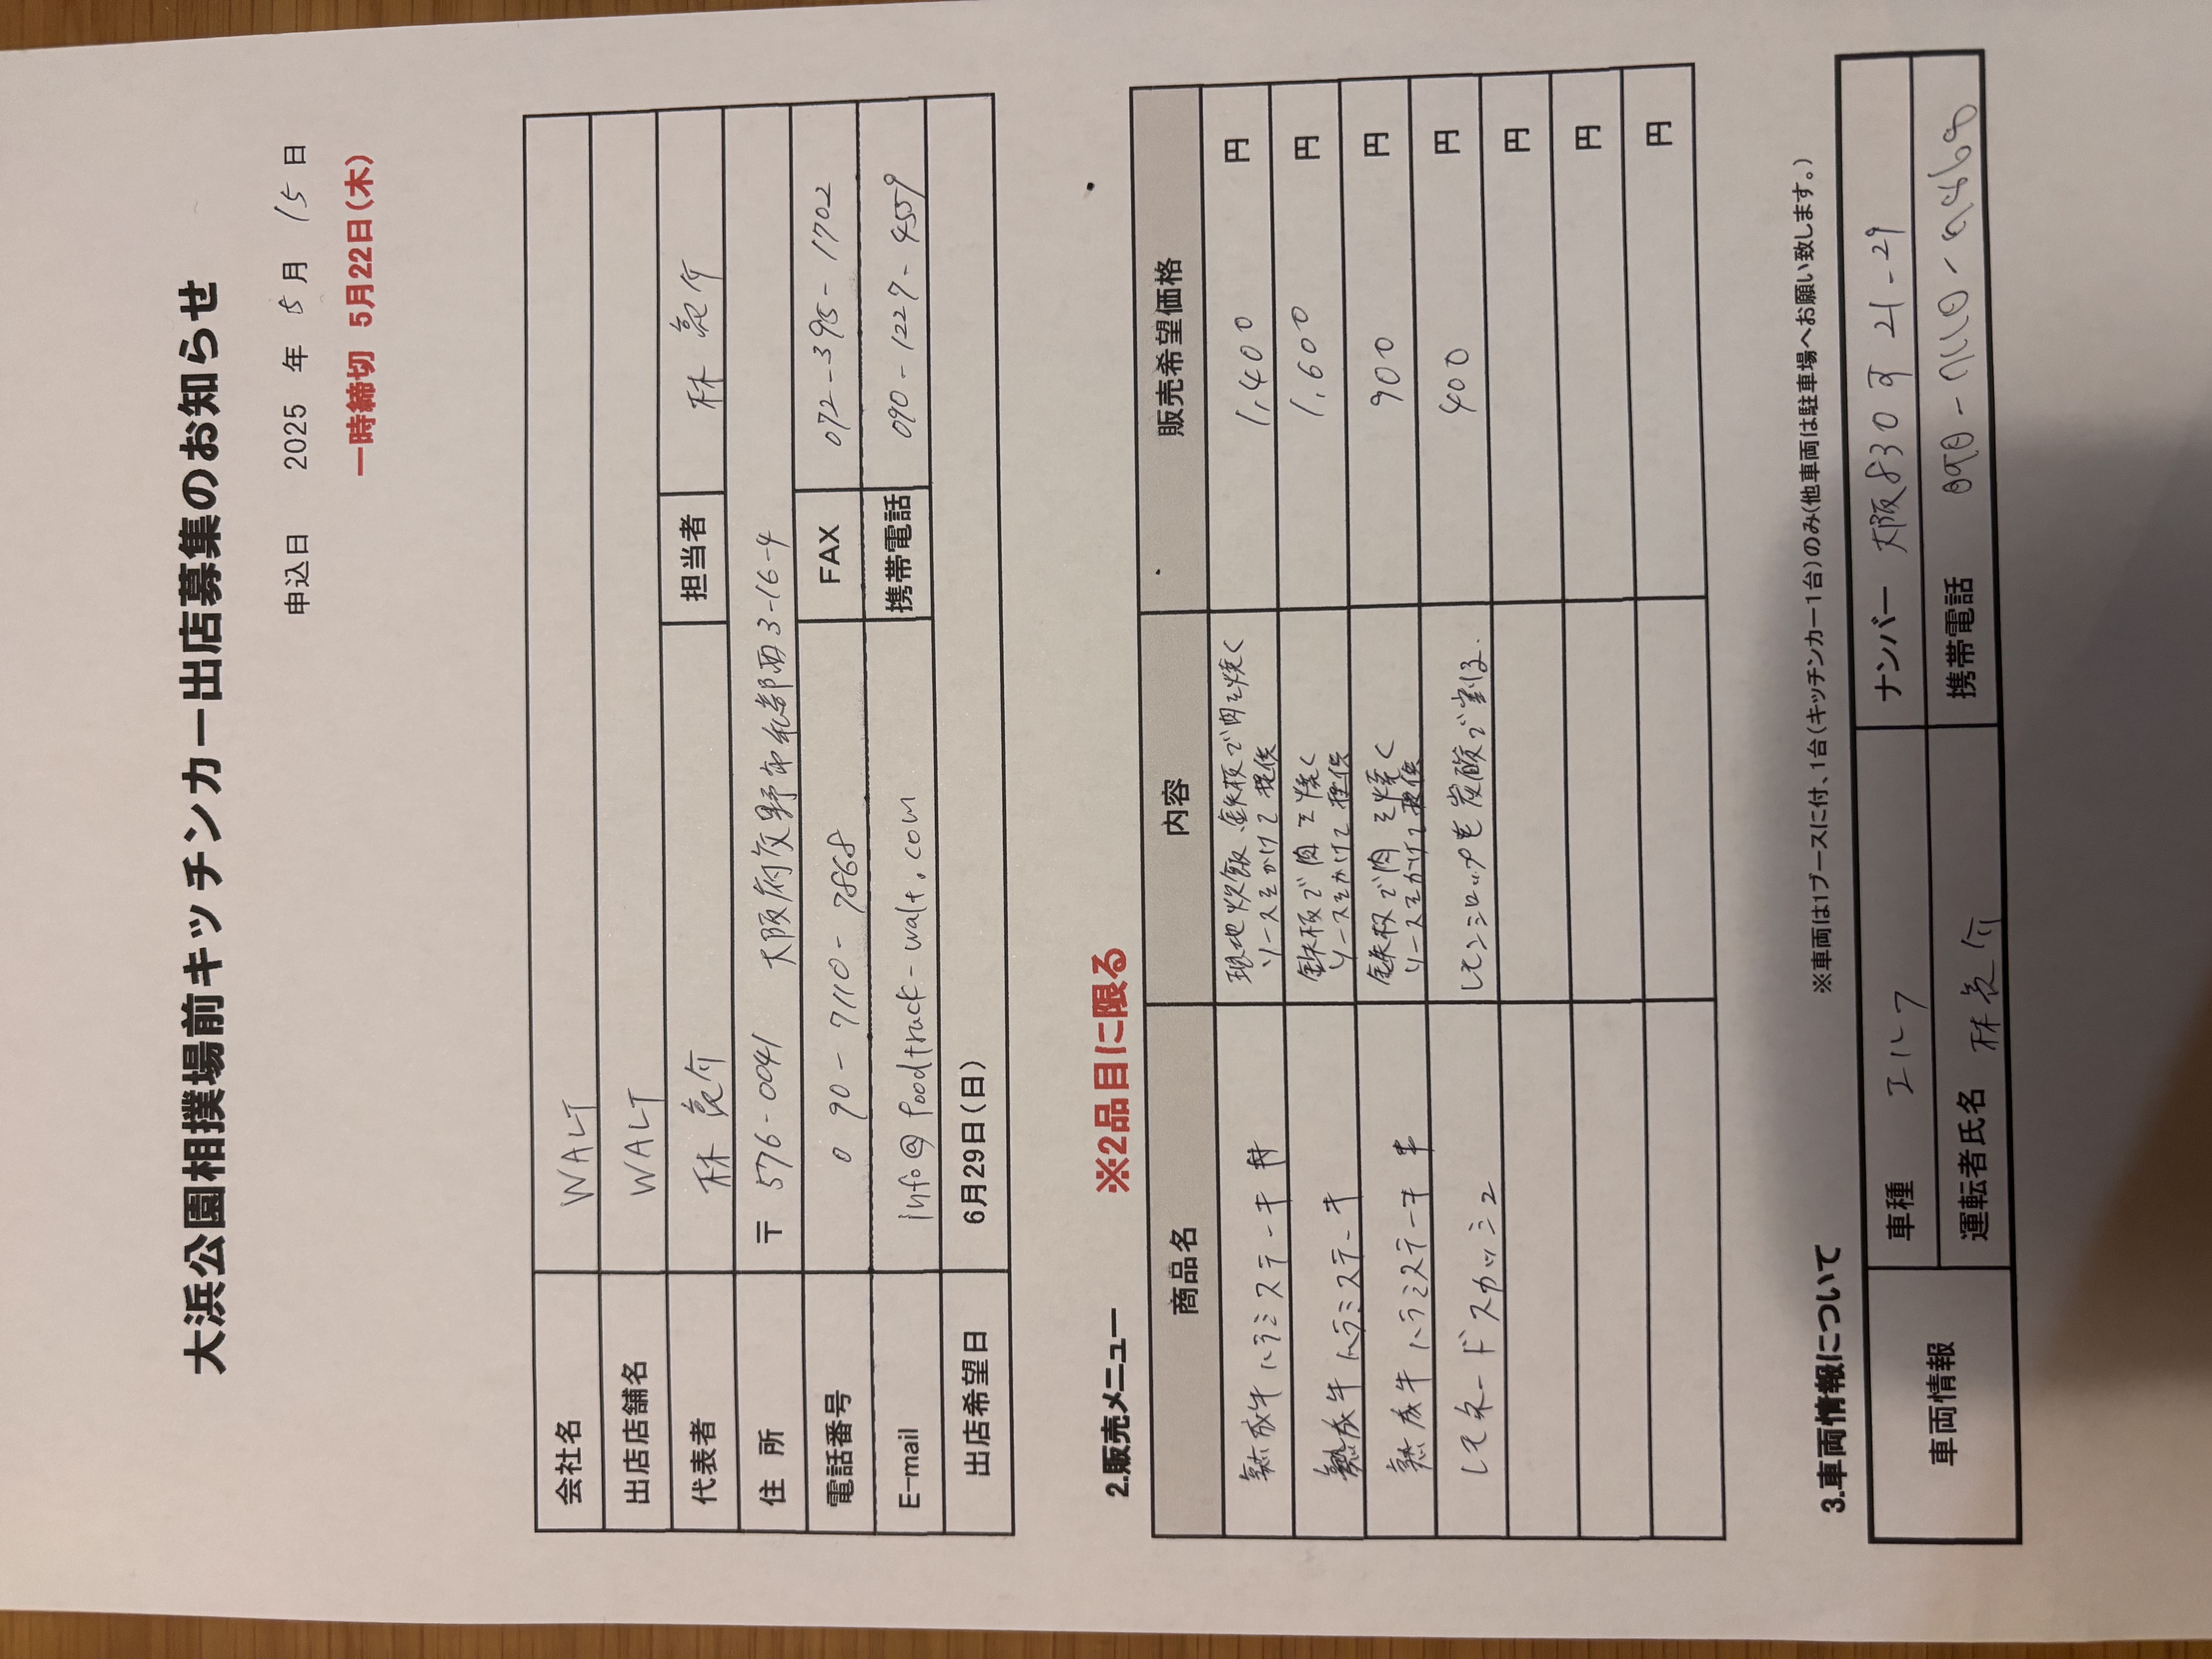 大浜公園相撲場前キッチンカー出店募集のお知らせ
申込日 2025 年 5 月 15 日
一時締切 5月22日(木)
会社名 WALT
出店店舗名 WALT
代表者 林 担当者 林
住 所 〒 576-0041 大阪府交野市私部西3-16-4
電話番号 090-7110-7868 FAX 072-395-1702
E-mail info@foodtruck-walt.com 携帯電話 090-1227-4559
出店希望日 6月29日(日)
2.販売メニュー ※2品目に限る
商品名 内容 販売希望価格
熟成牛ハラミステーキ丼 現地炊飯、鉄板で肉を焼く ソースをかけて提供 1,400 円
熟成牛ハラミステーキ 鉄板で肉を焼く ソースをかけて提供 1,600 円
熟成牛ハラミステーキ串 鉄板で肉を焼く ソースをかけて提供 900 円
レモネードスカッシュ レモンシロップを炭酸で割る. 400 円
円
円
円
3.車両情報について
※車両は1ブースに付、1台(キッチンカー1台)のみ(他車両は駐車場へお願い致します。)
車両情報 車種 エルフ ナンバー 大阪830 す 21-29
運転者氏名 林 携帯電話